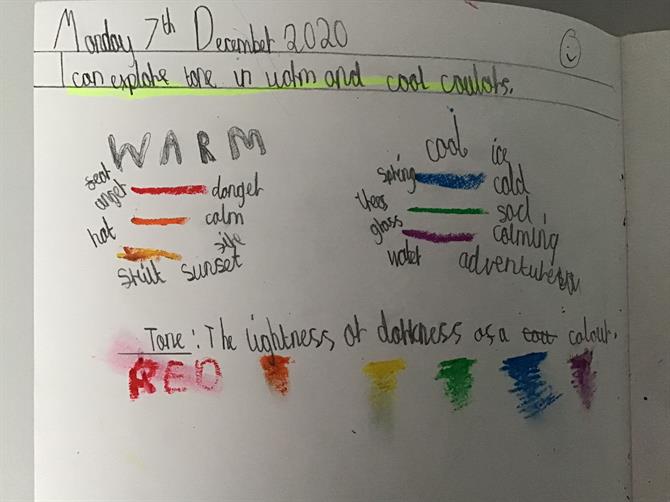 Monday 7th December 2020
I can explore tone in warm and cool coulors.
WARM
anger danger
hot calm
sunset
cool
ice
spring cold
trees sad
grass calming
water adventure
Tone: The lightness or darkness of a colour.
RED